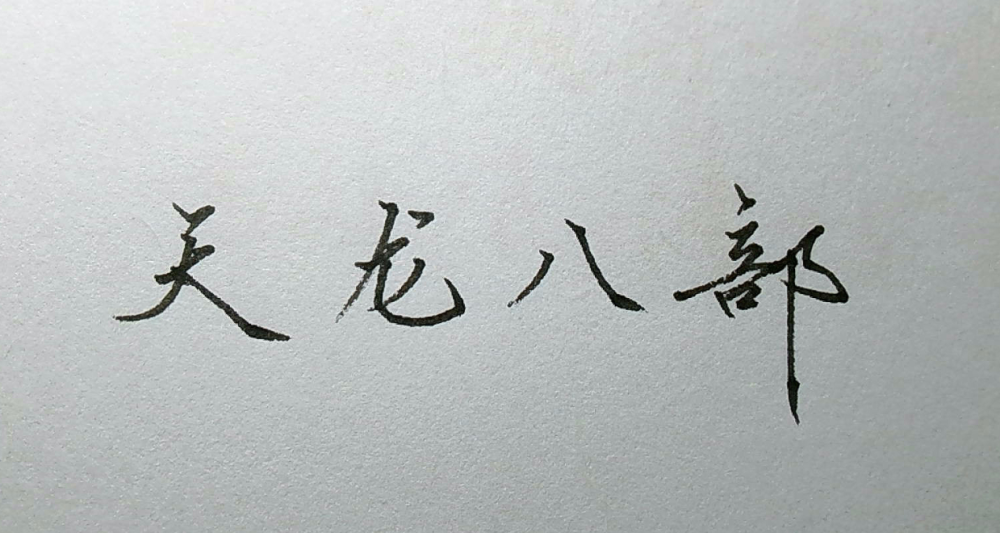 天龙八部